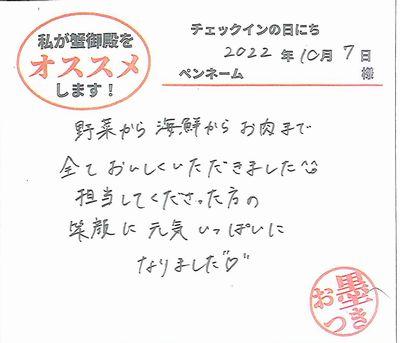 私が蟹御殿を
オススメ
します！
チェックインの日にち
2022年10月7日
ペンネーム 様
野菜から海鮮からお肉まで
全ておいしくいただきました
担当してくださった方の
笑顔に元気いっぱいに
なりました"♡"
お墨つき